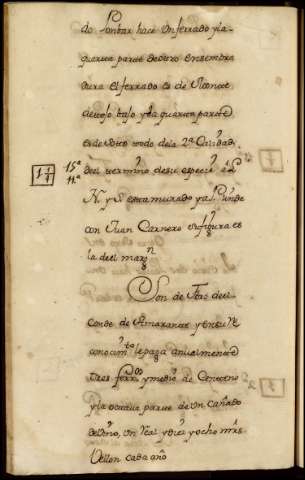 do Pontar hace un ferrado y la
quarta parte de otro ensembra
dura el ferrado es de
de tojo bajo y la quarta parte
es de soto todo de la 2ª Calidad
del termino de su especie a L
N. y S esta murado y a P. linde
con Juan Carnero su figura es
la del margn
1 1/4
15ª
11ª
Son de Frac. del
Conde de Amarante y en su Re
conocimto le paga anualmente
tres ferros y medio de Centeno
y la octava parte de un Cañado
de vino, un Real y diez y ocho mrs
Vellon cada año